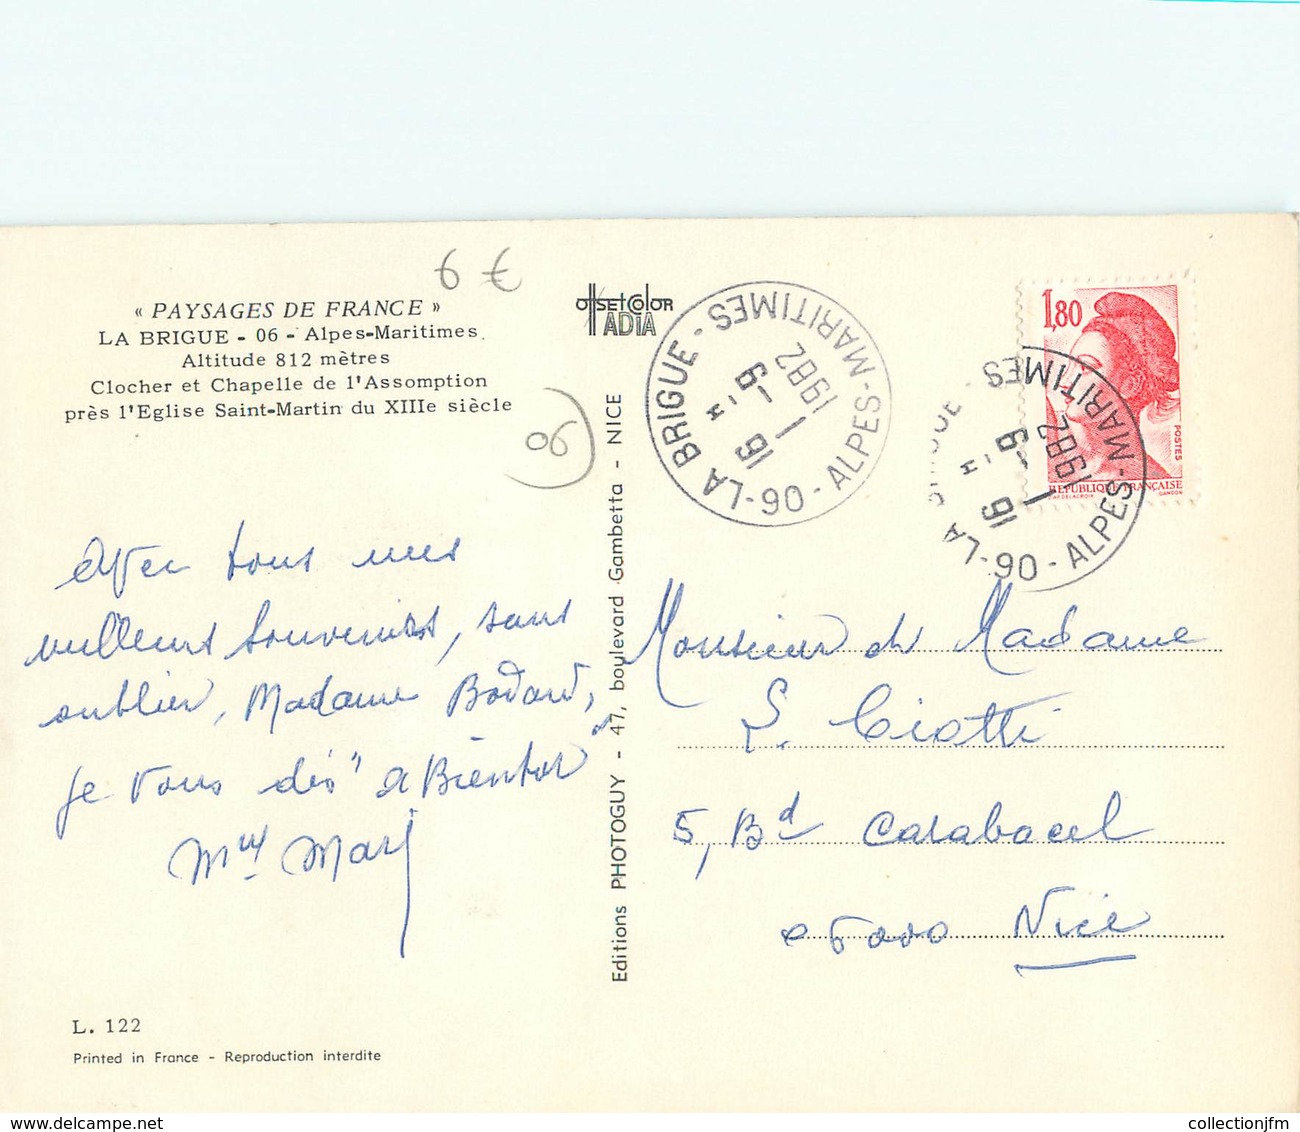 6 €
« PAYSAGES DE FRANCE »
LA BRIGUE - 06 - Alpes-Maritimes.
Altitude 812 mètres
Clocher et Chapelle de l'Assomption
près l'Eglise Saint-Martin du XIIIe siècle
06
Avec tous mes
meilleurs souvenirs, sans
oublier, Madame Bodard,
je vous dis "à Bientôt"
Mme Mari
L. 122
Printed in France - Reproduction interdite
OffSET COlOR
IADIA
Editions PHOTOGUY - 47, boulevard Gambetta - NICE
06-LA BRIGUE - ALPES-MARITIMES
16 H
6-1
1982
1,80
POSTES
REPUBLIQUE FRANÇAISE
D'AP. DELACROIX GANDON
06-LA BRIGUE - ALPES-MARITIMES
16 H
6-1
1982
Monsieur et Madame
S. Ciotti
5, Bd Carabacel
06000 Nice
delcampe.net
collectionjfm